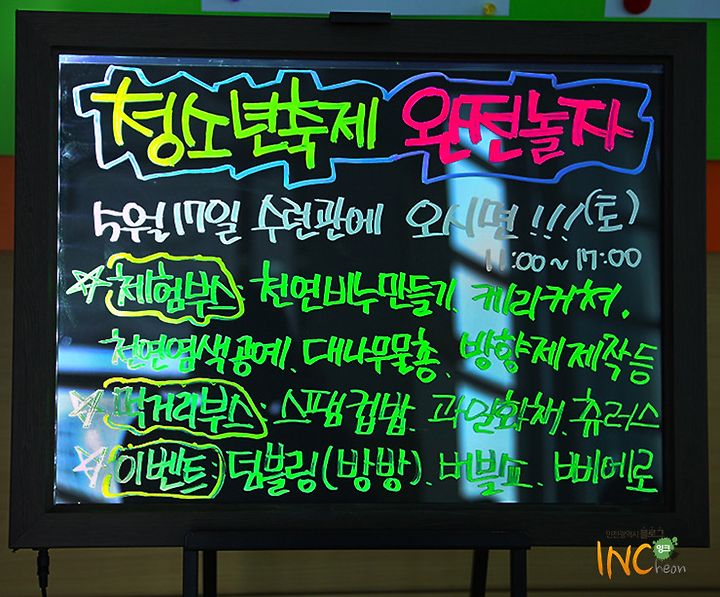 청소년축제 완전놀자
5월17일 수련관에 오시면!!!(토)
11:00~17:00
☆체험부스· 천연비누만들기. 케리커쳐.
천연염색공예. 대나무물총. 방향제제작등
☆먹거리부스· 스팸컵밥. 과일화채. 츄러스
☆이벤트: 덤블링(방방). 버블쇼. 삐에로
인천광역시블로그
INCheon
잉크